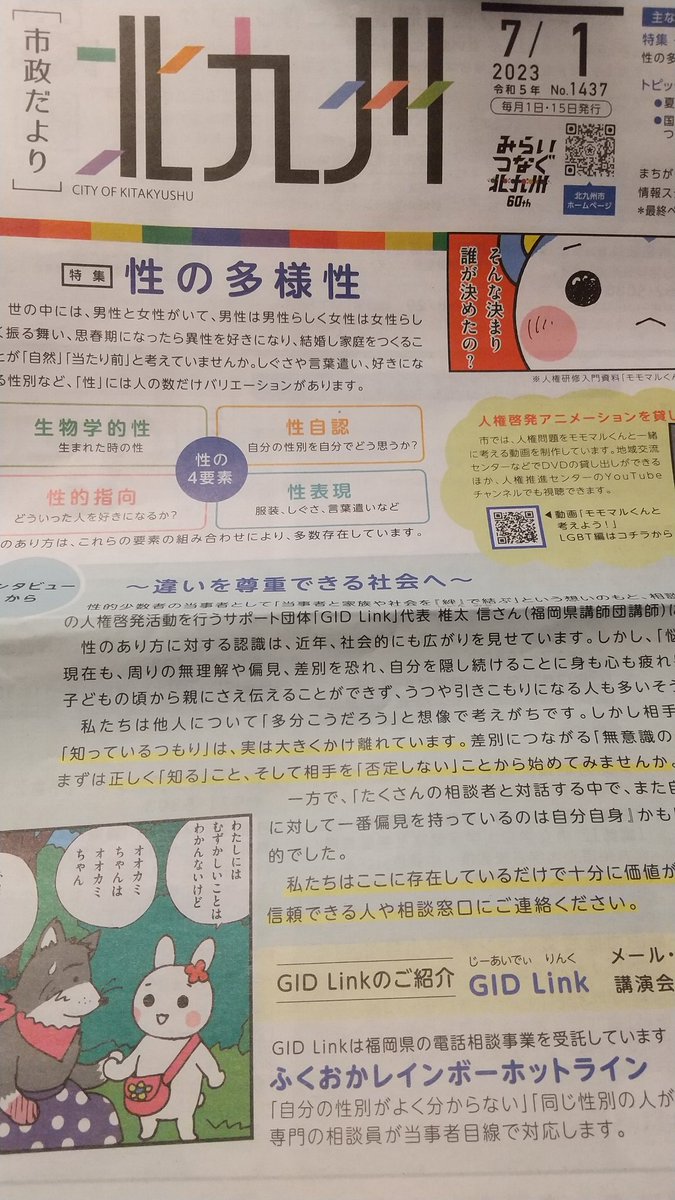 [市政だより]
北九州
CITY OF KITAKYUSHU
7/1
2023
令和5年 No.1437
毎月1日・15日発行
みらい
つなぐ
北九州
60th
北九州市
ホームページ
主な
特集
性の多
トピッ
●夏
●国
つ
まちが
情報ス
*最終ペ
特集 性の多様性
世の中には、男性と女性がいて、男性は男性らしく女性は女性らし
く振る舞い、思春期になったら異性を好きになり、結婚し家庭をつくるこ
とが「自然」「当たり前」と考えていませんか。しぐさや言葉遣い、好きにな
る性別など、「性」には人の数だけバリエーションがあります。
そんな決まり
誰が決めたの?
※人権研修入門資料「モモマルくん
生物学的性
生まれた時の性
性自認
自分の性別を自分でどう思うか?
性の
4要素
性的指向
どういった人を好きになるか?
性表現
服装、しぐさ、言葉遣いなど
のあり方は、これらの要素の組み合わせにより、多数存在しています。
人権啓発アニメーションを貸し
市では、人権問題をモモマルくんと一緒
に考える動画を制作しています。地域交流
センターなどでDVDの貸し出しができる
ほか、人権推進センターのYouTube
チャンネルでも視聴できます。
◀動画「モモマルくんと
考えよう!」
LGBT編はコチラから
ンタビュー
から
～違いを尊重できる社会へ～
性的少数者の当事者として「当事者と家族や社会を『絆』で結ぶ」という想いのもと、相談
の人権啓発活動を行うサポート団体「GID Link」代表 椎太 信さん(福岡県講師団講師)に
性のあり方に対する認識は、近年、社会的にも広がりを見せています。しかし、「悩
現在も、周りの無理解や偏見、差別を恐れ、自分を隠し続けることに身も心も疲れ
子どもの頃から親にさえ伝えることができず、うつや引きこもりになる人も多いそう
私たちは他人について「多分こうだろう」と想像で考えがちです。しかし相手
「知っているつもり」は、実は大きくかけ離れています。差別につながる「無意識の
まずは正しく「知る」こと、そして相手を「否定しない」ことから始めてみませんか。
一方で、「たくさんの相談者と対話する中で、また自
に対して一番偏見を持っているのは自分自身』かも
的でした。
私たちはここに存在しているだけで十分に価値が
信頼できる人や相談窓口にご連絡ください。
わたしには
むずかしいことは
わかんないけど
オオカミ
ちゃんは
オオカミ
ちゃん
GID Linkのご紹介
じーあいでぃ りんく
GID Link
メール・
講演会
GID Linkは福岡県の電話相談事業を受託しています
ふくおかレインボーホットライン
「自分の性別がよく分からない」「同じ性別の人が
専門の相談員が当事者目線で対応します。